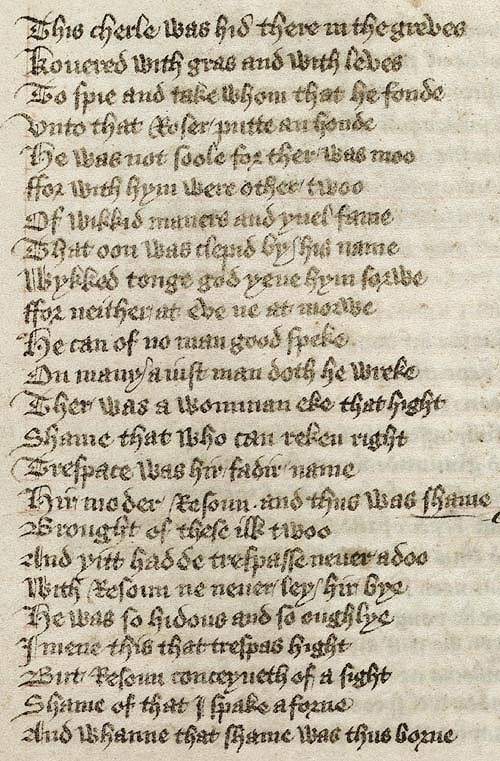 This cherle was hid there in the greves
Kouered with gras and with leves
To spie and take whom that he fonde
Vnto that Roser putte an honde
He was not soole for ther was moo
ffor with hym were other twoo
Of wikkid maners and yuel fame
That oon was clepid by his name
Wykked tonge god yeue hym sorwe
ffor neither at eve ne at morwe
He can of no man good speke
On many a iust man doth he wreke
Ther was a womman eke that hight
Shame that who can reken right
Trespace was hir fadir name
Hir moder Resoun and thus was shame
Brought of these ilk twoo
And yitt hadde trespasse neuer adoo
With Resoun ne neuer ley hir bye
He was so hidous and so oughlye
I mene this that trespas hight
But Resoun conceyueth of a sight
Shame of that I spake aforne
And whanne that shame was thus borne